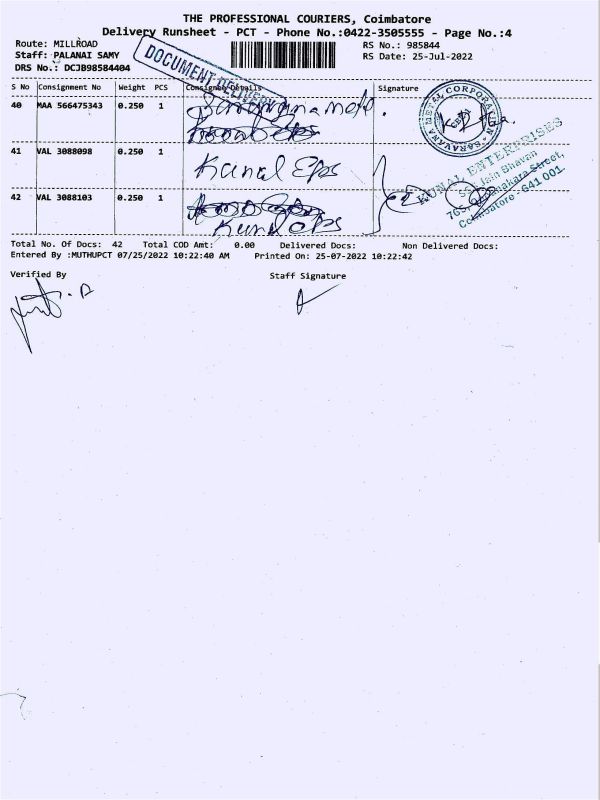 THE PROFESSIONAL COURIERS, Coimbatore
Delivery Runsheet - PCT - Phone No.:0422-3505555 - Page No.:4
Route: MILLROAD
RS No.: 985844
Staff: PALANAI SAMY
RS Date: 25-Jul-2022
DRS No.: DCJB98584404
DOCUMENT DELIVERY
S No Consignment No Weight PCS Consignee Details Signature
40 MAA 566475343 0.250 1
SARAVANA METAL CORPORATION
CBE-1
41 VAL 3088098 0.250 1 Kunal Eps
KUNAL ENTERPRISES
Bhavan
Street,
Coimbatore - 641 001.
42 VAL 3088103 0.250 1
Kunal EPS
Total No. Of Docs: 42 Total COD Amt: 0.00 Delivered Docs: Non Delivered Docs:
Entered By :MUTHUPCT 07/25/2022 10:22:40 AM Printed On: 25-07-2022 10:22:42
Verified By Staff Signature